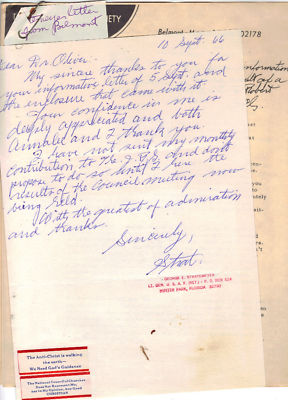 answer letter
from Belmont
SOCIETY
Belmont,
02178
10 Sept. 66
Dear Dr. Oliver:
My sincere thanks to you for
your informative letter of 5 Sept. and
the enclosure that came with it.
Your confidence in me is
deeply appreciated and both
Annalee and I thank you.
I have not sent my monthly
contribution to The J.B.S. and don't
propose to do so until I see the
results of the Council meeting now
being held.
With the greatest of admiration
and thanks.
Sincerely,
Strat.
GEORGE E. STRATEMEYER
LT. GEN. U.S.A.F. (RET) - P. O. BOX
WINTER PARK, FLORIDA 32790
information
out of a
The Anti-Christ is walking
the earth—
We Need God's Guidance
The National Council of Churches
Does Not Represent Me,
nor in My Opinion, Any Good
CHRISTIAN